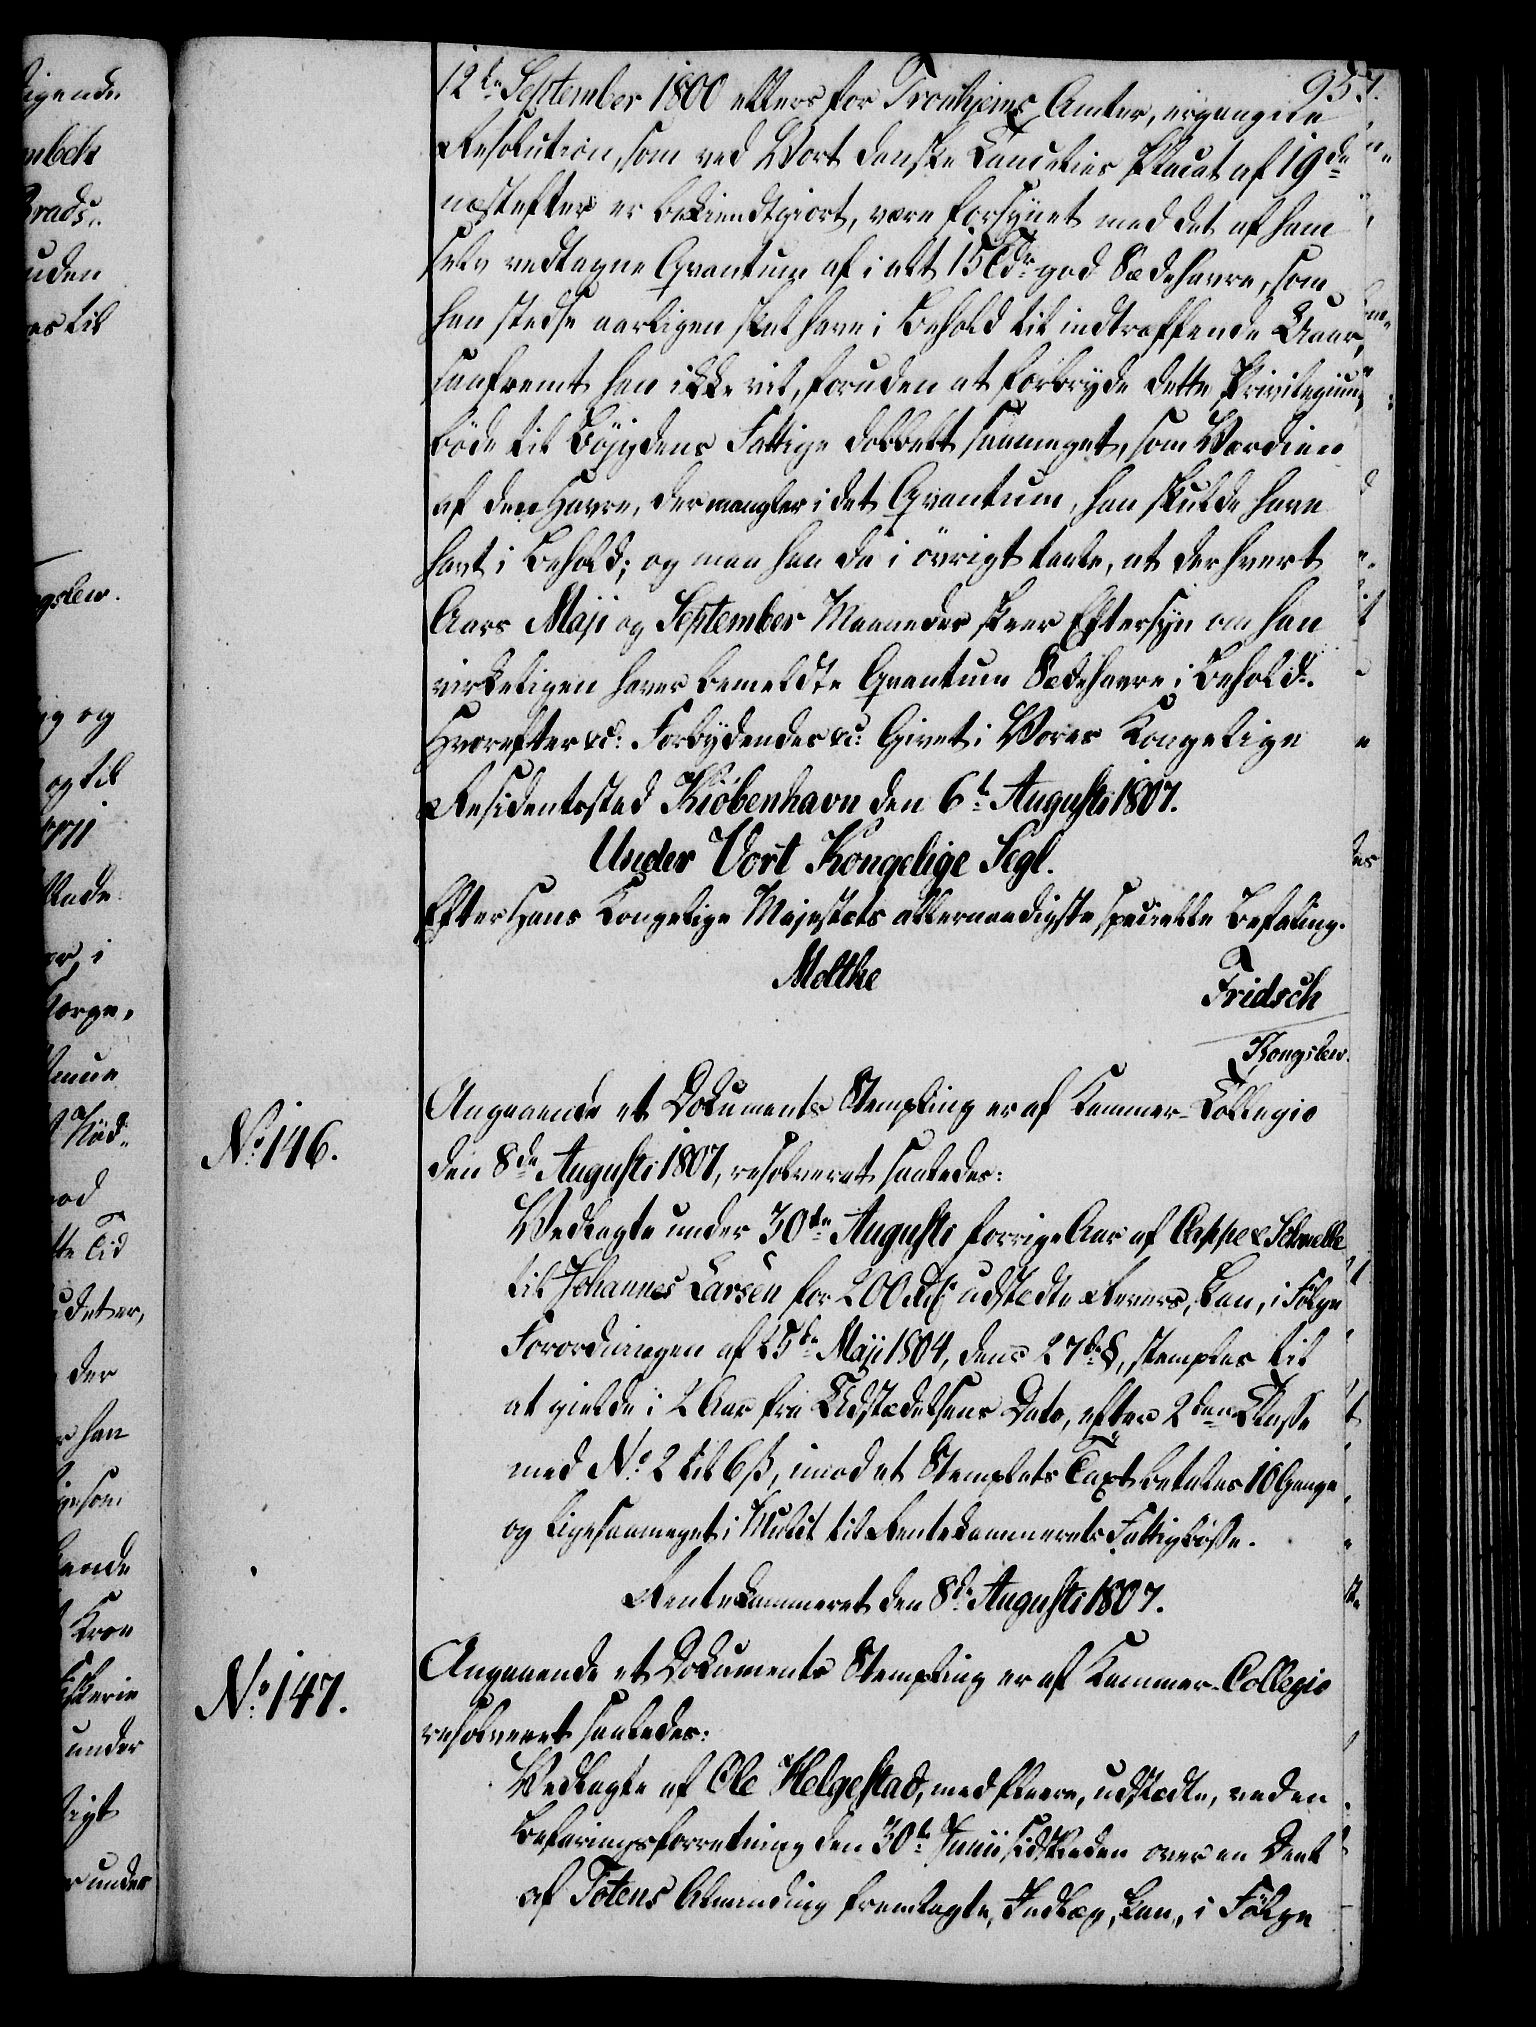 957.
12te September 1800 ellers for Tronhjems Amter, ergangne
Resolution, som ved Vort danske Cancelies Placat af 19de
næstefter er bekiendtgiort, være forsynet med det af ham
selv vedtagne Qvantum af i alt 15 Tdr god Sædehavre, som
han stedse aarligen skal have i Behold til indtræffende Uaar,
saafremt han ikke vil, foruden at forbryde dette Privilegium,
böde til Böygdens Fattige dobbelt saameget, som Værdien
af den Havre, der mangler i det Qvantum, han skulde have
havt i Behold; og maa han da i övrigt taale, at der hvert
Aars Maji og September Maaneder skeer Eftersyn om han
virkeligen haver bemeldte Qvantum Sædehavre i Behold.
Hvorefter &c: Forbydendes &c: Givet i Vores Kongelige
Residentsstad Kiöbenhavn den 6t Augusti 1807.
Under Vort Kongelige Segl.
Efter Hans Kongelige Majestæts allernaadigste specielle Befaling.
Moltke
Fridsch
Kongslew.
No 146.
Angaaende et Dokuments Stempling er af Kammer-Collegio
den 8de Augusti 1807, resolveret saaledes:
Vedlagte under 30te Augusti forrige Aar af Cappe & Schmelle
til Johannes Larsen for 200 Rd udstædte Revers, kan, i Fölge
Forordningen af 25de Maji 1804, dens 27de §, stemples til
at gielde i 2 Aar fra Udstædelsens Dato, efter 2den Klasse
med No 2 til 6 ß, imod at Stemplets Taxt betales 10 Gange
og ligesaameget i Mulct til Rentekammerets Fattigbösse.
Rentekammeret den 8de Augusti 1807.
No 147.
Angaaende et Dokuments Stempling er af Kammer-Collegio
resolveret saaledes:
Vedlagte af Ole Helgestad, med fleere, udstædte, ved en
Befaringsforretning den 30te Junii sidstleden over en Deel
af Totens Alminding fremlagte, Indlæg, kan, i Fölge